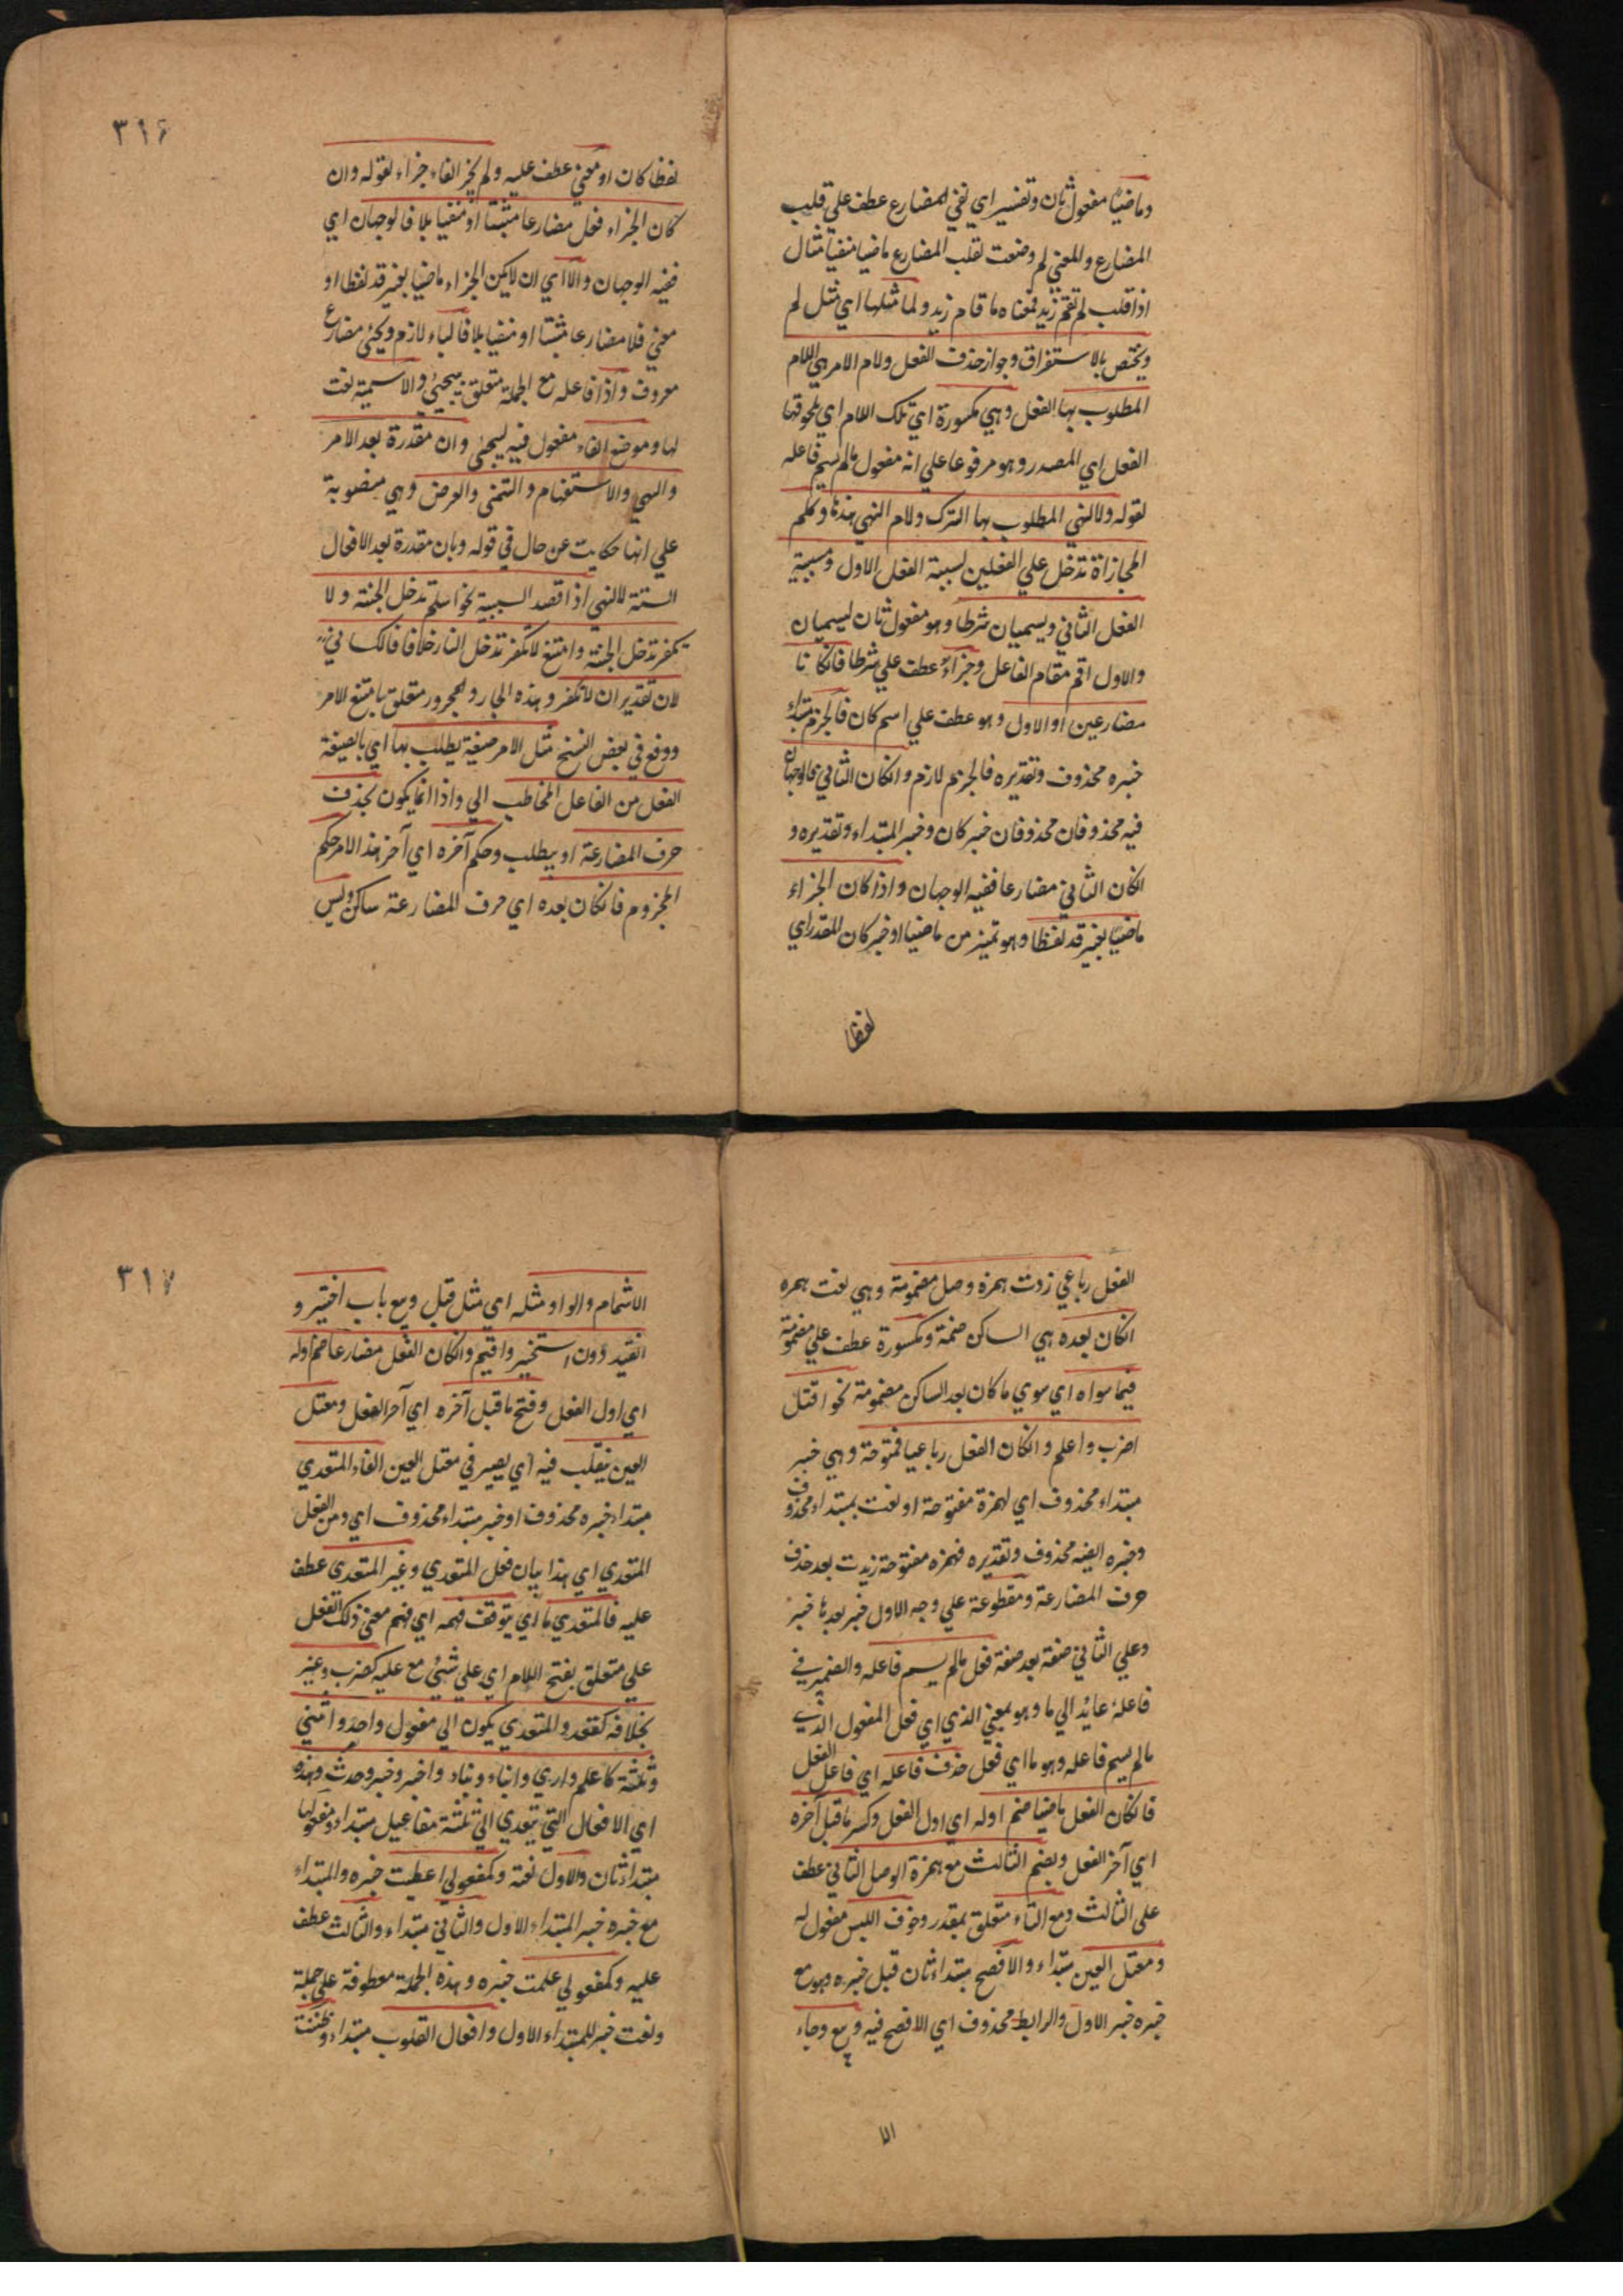 وماضيًا مفعول ثان وتفسير اي نفي المضارع عطف علي قلب
المضارع والمعني لم وضعت لقلب المضارع ماضيا منفيا مثال
اذا قلب لم تقم زيد فمعناه ما قام زيد ولما مثلها اي مثل لم
ويختص بالاستغراق وجواز حذف الفعل ولام الامر هي اللام
المطلوب بها الفعل وهي مكسورة اي تلك اللام اي يلحوقها
الفعل اي المصدر وهو مرفوعا علي انه مفعول مالم يسم فاعله
لقوله ولا النهي المطلوب بها الترك ولام النهي هذها وكلم
المجازاة تدخل علي الفعلين لسببة الفعل الاول ومسببية
الفعل الثاني ويسميان شرطا وهو مفعول ثان ليسميان
والاول اقم مقام الفاعل وجزاء عطف علي شرطا فانكانا
مضارعين او الاول وهو عطف علي اسم كان فالجزم مبتداء
خبره محذوف وتقديره فالجزم لازم وانكان الثاني فالوجهان
فيه محذوفان محذوفان خبر كان وخبر المبتداء وتقديره و
انكان الثاني مضارعا ففيه الوجهان واذا كان الجزاء
ماضيًا بغير قد لفظا وهو تميز من ماضيا او خبر كان المقدر اي
لفظا
٣١٦
لفظا كان او معني عطف عليه ولم يجز الفاء جزاء لقوله وان
كان الجزاء فعل مضارعا مثبتا او منفيا بلا فالوجهان اي
ففيه الوجهان والا اي ان لايكن الجزاء ماضيا بغير قد لفظا او
معني فلا مضارعا مثبتا او منفيا بلا فالباء لازم ويجئ مضارع
معروف واذا فاعله مع الجملة متعلق بيجئ والاسمية نعت
لها وموضع الفاء مفعول فيه ليجئ وان مقدرة بعد الامر
والنهي والاستفهام والتمني والعرض وهي منصوبة
علي انها حكايت عن حال في قوله وبان مقدرة بعد الافعال
الستة لالنهي اذا قصد السببية نحو اسلم تدخل الجنة ولا
تكفر تدخل الجنة وامتنع لا تكفر تدخل النار خلافا فالكسائي
لان تقديران لا تكفر وهذه الجار والمجرور متعلق بامتنع الامر
ووقع في بعض النسخ مثل الامر صيغة يطلب بها اي بالصيغة
الفعل من الفاعل المخاطب الي واذا انما يكون بحذف
حرف المضارعة او بيطلب وحكم آخره اي آخر هذا الامر حكم
المجزوم فانكان بعده اي حرف المضارعة ساكن وليس
الفعل رباعي زدت همزة وصل مضمومة وهي نعت همزه
انكان بعده هي الساكن ضمة ومكسورة عطف علي مضمومة
فيما سواه اي سوي ما كان بعد الساكن مضمومة نحو اقتل
اضرب واعلم وانكان الفعل رباعيا فمفتوحة وهي خبر
مبتداء محذوف اي لهمزة مفتوحة او نعت بمبتداء محذوف
وخبره ايضه محذوف وتقديره فهمزه مفتوحة زيدت بعد حذف
حرف المضارعة ومقطوعة علي وجه الاول خبر بعدها خبر
وعلي الثاني صفة بعد صفة فعل مالم يسم فاعله والضمير في
فاعله عائد الي ما وهو بمعني الذي اي فعل المفعول الذي
مالم يسم فاعله وهو ما اي فعل حذف فاعله اي فاعل الفعل
فانكان الفعل ماضيا ضم اوله اي اول الفعل وكسر ماقبل آخره
اي آخر الفعل وبضم الثالث مع همزة الوصل الثاني عطف
علي الثالث ومع التاء متعلق بمقدر وخوف اللبس مفعول له
ومعتل العين مبتداء والافصح مبتداء ثان قبل خبره وهو مع
خبره خبر الاول والرابط محذوف اي الافصح فيه وبيع وجاء
الا
٣١٧
الاشمام والواو مثله اي مثل قيل وبيع باب اختير و
انقيد دون استخير واقيم وانكان الفعل مضارعا ضم اوله
اي اول الفعل وفتح ماقبل آخره اي آخر الفعل ومعتل
العين ينقلب فيه اي يصير في معتل العين الفاء المتعدي
مبتداء خبره محذوف او خبر مبتداء محذوف اي ومن الفعل
المتعدي اي هذا بيان فعل المتعدي وغير المتعدي عطف
عليه فالمتعدي ما اي يتوقف فهمه اي فهم معني ذلك الفعل
علي متعلق بفتح اللام اي علي شئ مع عليه كضرب وغير
بخلافه كقعد والمتعدي يكون الي مفعول واحد واثنين
وثلثة كاعلم واري وانباء ونباء واخبر وخبر وحدث وهذه
اي الافعال التي يتعدي الي ثلثة مفاعيل مبتداء ومفعولها
مبتداء ثان والاول نعته وكمفعولي اعطيت خبره والمبتداء
مع خبره خبر المبتداء الاول والثاني مبتداء والثالث عطف
عليه وكمفعولي علمت خبره وهذه الجملة معطوفة علي جملة
ونعت خبر للمبتداء الاول وافعال القلوب مبتداء وظننت